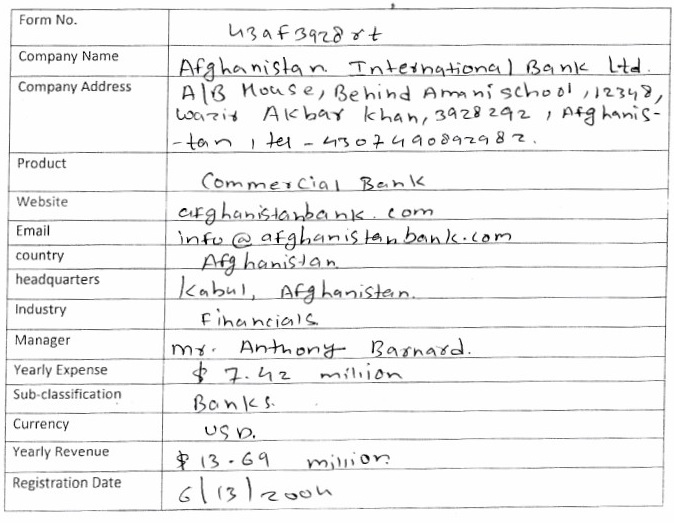 Form No. 43af3928rt
Company Name Afghanistan International Bank Ltd.
Company Address AIB House, Behind Amani school, 12348,
Wazir Akbar Khan, 3928292, Afghanis-
-tan, tel - 4307490892982.
Product Commercial Bank
Website afghanistanbank.com
Email info@afghanistanbank.com
country Afghanistan
headquarters Kabul, Afghanistan.
Industry Financials
Manager Mr. Anthony Barnard.
Yearly Expense $ 7.42 million
Sub-classification Banks.
Currency USD.
Yearly Revenue $ 13.69 million
Registration Date 6/13/2004